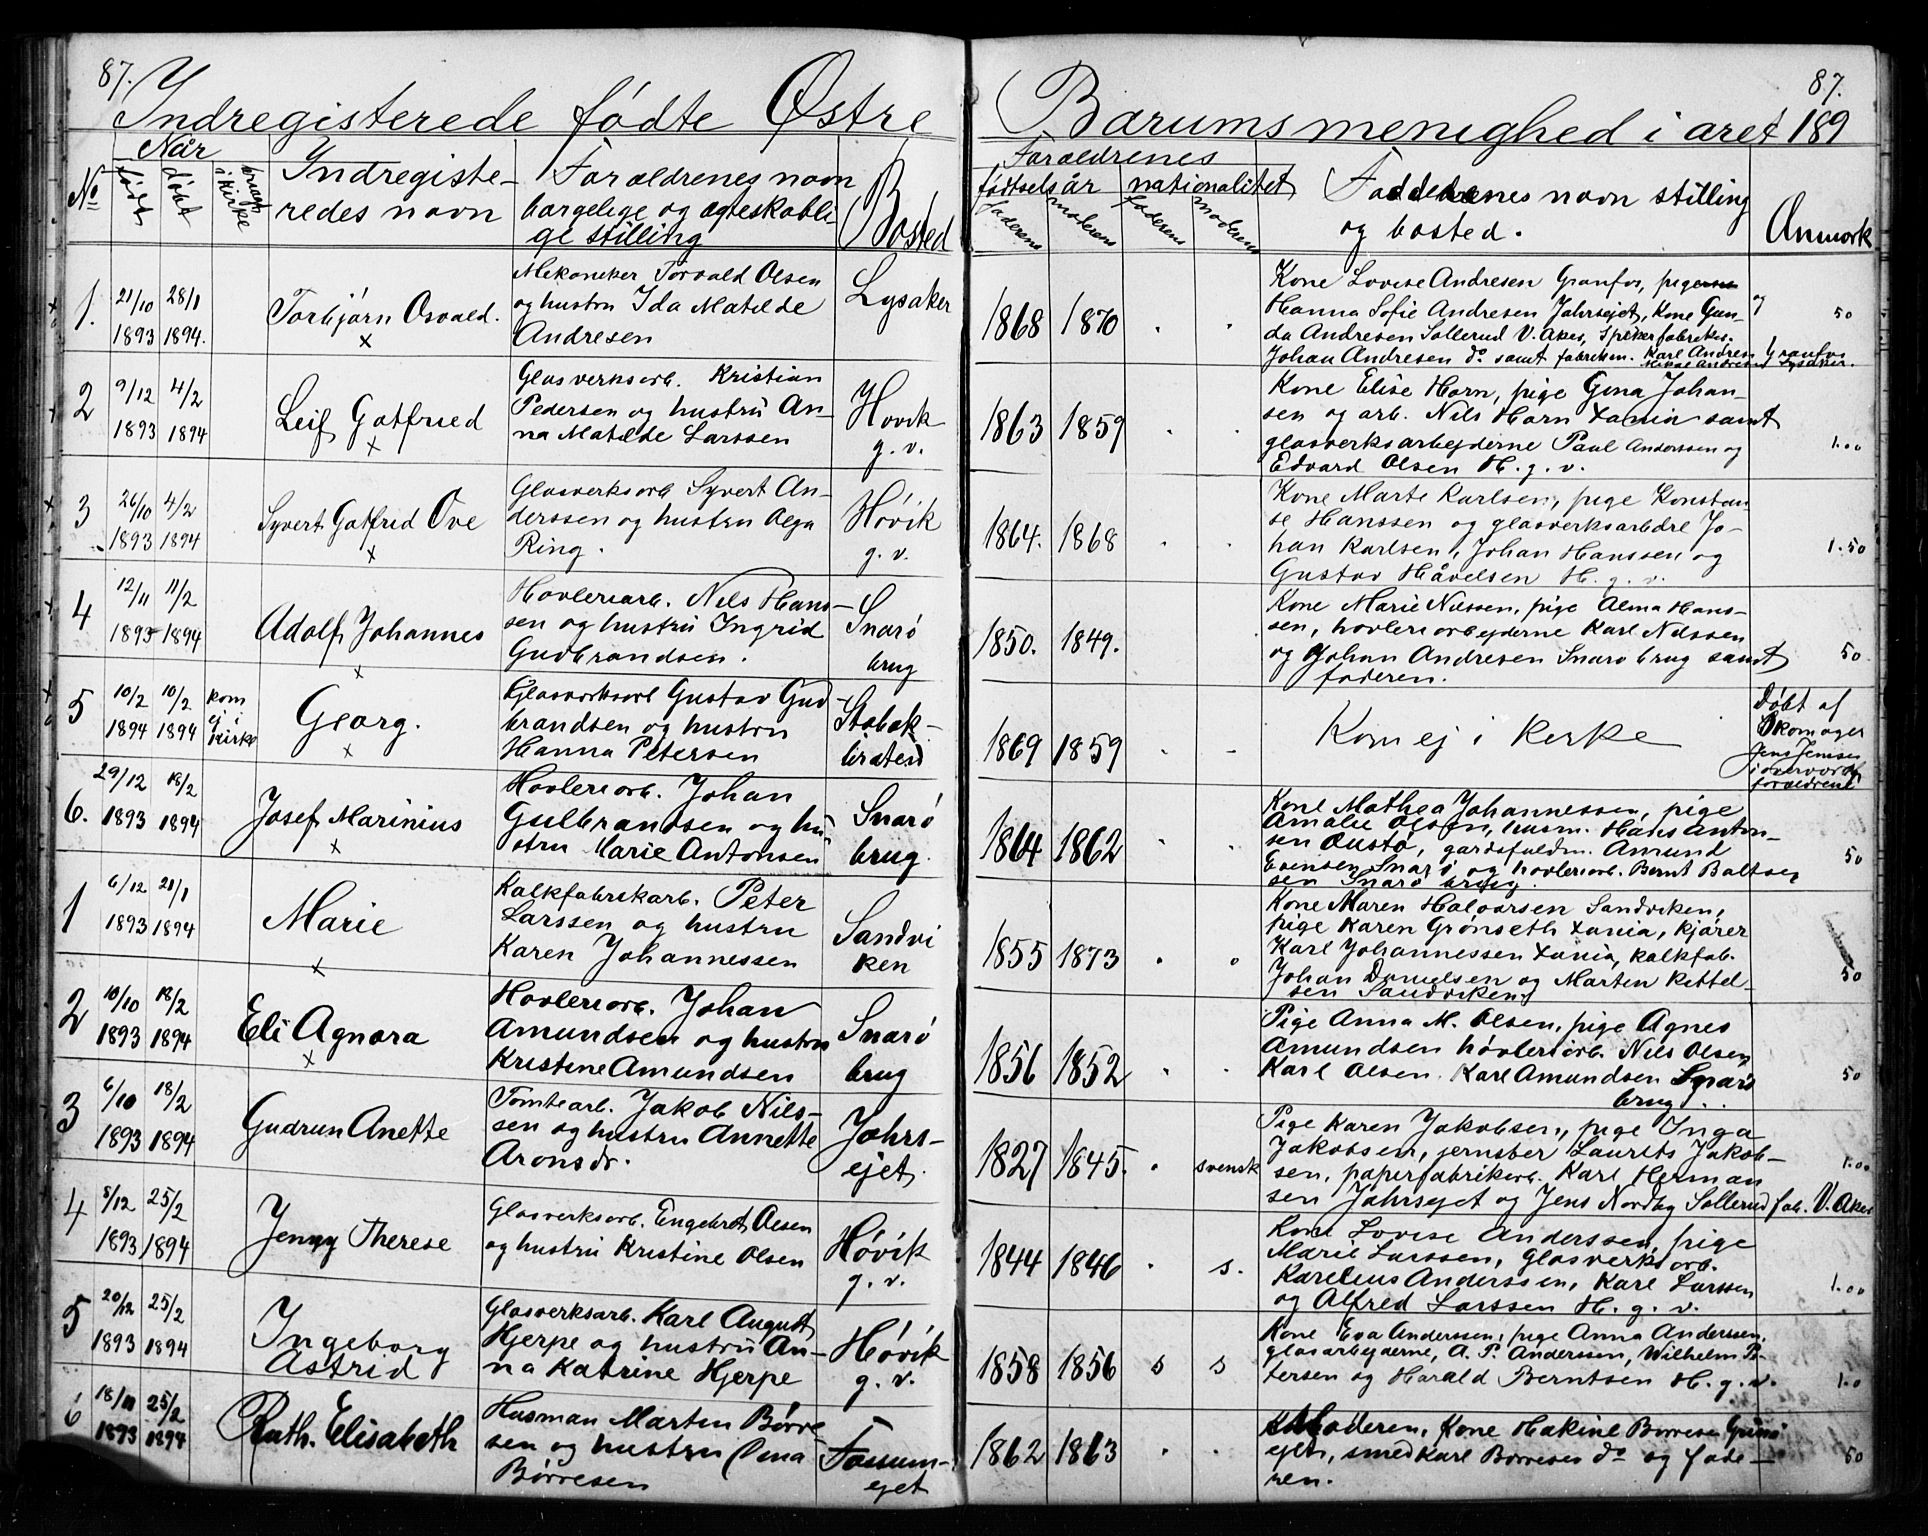 87.
Indregisterede fødte Østre
Når
No
født
døbt
i kirke
Indregiste-
redes navn
Foræ̈ldrenes navn
borgelige og ægteskabli-
ge stilling
Bosted
1.
21/10
1893
28/1
1894.
Torbjørn Osvald.
x
Mekaneker Torvald Olsen
og hustru Ida Matilde
Andresen
Lysaker
2
9/12
1893
4/2
1894
Leif Gotfried
x
Glasverksarb. Kristian
Pedersen og hustru An-
na Matilde Larssen
Høvik
g. v.
3
26/10
1893
4/2
1894
Syvert Gotfrid Ove
x
Glasverksarb Syvert An-
derssen og hustru Olga
Ring.
Høvik
g. v.
4
12/11
1893
11/2
1894
Adolf Johannes
x
Hovleriarb. Nils Hans-
sen og hustru Ingrid
Gudbrandsen.
Snarø
brug
5
10/2
1894
10/2
1894
kom
ej i
kirke
Georg.
x
Glasverksarb Gustav Gud
brandsen og hustru
Hanna Petersen
Stabæk-
bråten
6.
29/12
1893
18/2
1894
Josef Marinius
x
Hovleriarb. Johan
Gulbrandsen og hu
stru Marie Antonsen
Snarø
brug.
1
6/12
1893
21/1
1894
Marie
x
Kalkfabrikarb. Peter
Larssen og hustru
Karen Johannessen
Sandvi
ken
2
10/10
1893
18/2
1894
Eli Agnora
x
Hovleriarb. Johan
Amundsen og hustru
Kristine Amundsen
Snarø
brug
3
6/10
1893
18/2
1894
Gudrun Anette
Tomtearb. Jakob Nils-
sen og hustru Annette
Aronsdr.
Jahrs-
ejet.
4
5/12
1893
25/2
1894
Jenny Therese
Glasverksarb. Engebret Olsen
og hustru Kristine Olsen
Høvik
g. v.
5
20/12
1893
25/2
1894
Ingeborg
Astrid
Glasverksarb. Karl August
Hjerpe og hustru An-
na Katrine Hjerpe
Høvik
g. v.
6
18/11
1893
25/2
1894
Ruth. Elisabeth
Husman Martin Børre
sen og hustru Oma
Børresen
Fossum-
ejet
87.
Bærums menighed i året 189
Forældrenes
fødselsår
nationalitet
faderens
moderens
faderens
moderens
Faddernes navn stilling
og bosted.
Anmærk
1868 1870
Kone Lovise Andresen Granfos, pige
Hanna Sofie Andresen Jahrsejet, Kone Gun-
da Andresen Sollerud V. Aker, Spikerfabrikes.
Johan Andresen do samt fabrikm. Karl Andresen Granfos
Mikal Andresen Lysaker.
50
1863 1859
Kone Elise Horn, pige Gina Johan-
sen og arb. Nils Horn Xania samt
glasverksarbejderne Paul Anderssen og
Edvard Olsen H. g. v.
1.00
1864. 1868
Kone Marte Karlsen, pige Konstan-
se Hanssen og glasverksarbdre Jo-
han Karlsen, Johan Hanssen og
Gustav Håvelsen H. g. v.
1.50
1850. 1849.
Kone Marie Nilssen, pige Alma Hans-
sen, hovleriarbejderne Karl Nilssen
og Johan Andresen Snarø brug samt
faderen.
50
1869 1859
Kom ej i kirke
Døbt af
Skomager
Jens Jensen
i overvær af
forældrene
1864 1862
Kone Mathea Johannessen, pige
Amalie Olsen, husm. Hans Anton-
sen Oustø, gårdsfuldm. Amund
Evensen Snarø og hovleriarb. Bernt Baltser
sen Snarø brug.
50
1855 1873
Kone Maren Halvorsen Sandviken,
pige Karen Grønseth Xania, kjører
Karl Johannessen Xania, kalkfab.
Johan Danielsen og Marten Kittel-
sen Sandviken
50
1856 1852
Pige Anna M. Olsen, pige Agnes
Amundsen høvleriarb. Nils Olsen
Karl Olsen. Karl Amundsen Snarø
brug
50
1827 1845.
svensk
Pige Karen Jakobsen, pige Inga
Jakobsen, jernstøber Laurits Jakob-
sen, papirfabrikarb. Karl Herman
sen Jahrsejet og Jens Nordby Sollerud fab. V. Aker
1.00
1844 1846
s.
Kone Lovise Anderssen, pige
Marie Larssen, Glasverksarb.
Karelius Anderssen, Karl Larssen
og Alfred Larssen H. g. v.
1.00
1858 1856 s s
Kone Eva Anderssen, pige Anna Anderssen,
glasarbejderne, A. P. Anderssen, Wilhelm Pe-
tersen og Harald Berntsen H. g. v.
1.0
1862 1863
Moderen, Kone Hakine Børresen
ejet, smed Karl Børresen do og fade-
ren.
50